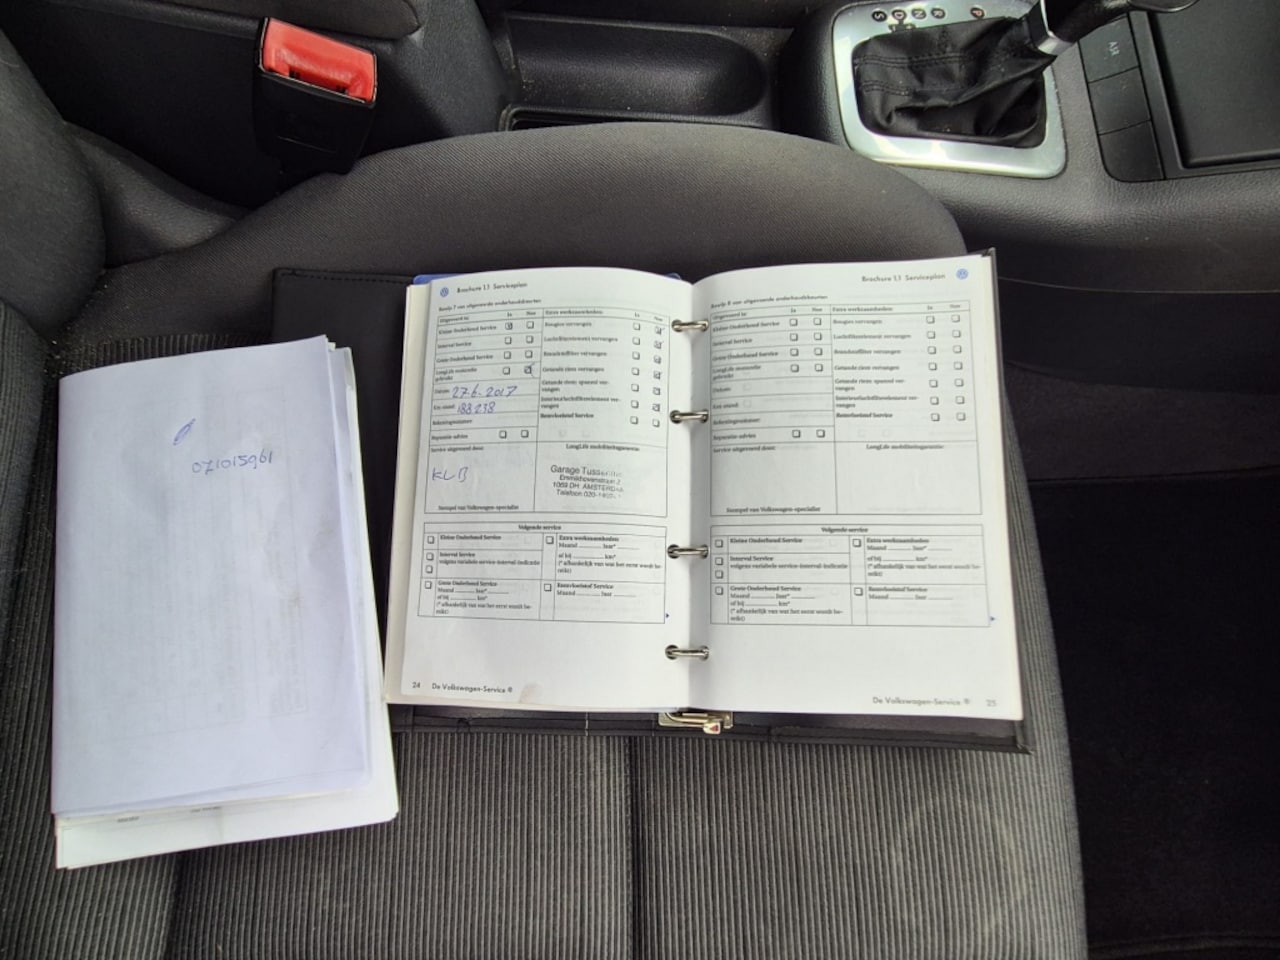 S D N R P
AIR
071015961
Brochure 1.1 Serviceplan
Bewijs 7 van uitgevoerde onderhoudsbeurten
Uitgevoerd is: Ja Nee
Kleine Onderhoud Service
Interval Service
Grote Onderhoud Service
LongLife motorolie
gebruikt
Datum: 27-6-2017
Km-stand: 188.238
Rekeningnummer:
Reparatie-advies
Extra werkzaamheden: Ja Nee
Bougies vervangen
Luchtfilterelement vervangen
Brandstoffilter vervangen
Getande riem vervangen
Getande riem: spanrol ver-
vangen
Interieurluchtfilterelement ver-
vangen
Remvloeistof Service
Service uitgevoerd door:
KLB
Stempel van Volkswagen-specialist
LongLife mobiliteitsgarantie:
Garage
1069 DH AMSTERDAM
Telefoon 020-
Volgende service
Kleine Onderhoud Service
Interval Service
volgens variabele service-interval-indicatie
Grote Onderhoud Service
Maand ........ Jaar*
of bij ........ km*
(* afhankelijk van wat het eerst wordt be-
reikt)
Extra werkzaamheden:
Maand ........ Jaar*
of bij ........ km*
(* afhankelijk van wat het eerst wordt be-
reikt)
Remvloeistof Service
Maand ........ Jaar ........
24 De Volkswagen-Service ®
Brochure 1.1 Serviceplan
Bewijs 8 van uitgevoerde onderhoudsbeurten
Uitgevoerd is: Ja Nee
Kleine Onderhoud Service
Interval Service
Grote Onderhoud Service
LongLife motorolie
gebruikt
Datum:
Km-stand:
Rekeningnummer:
Reparatie-advies
Extra werkzaamheden: Ja Nee
Bougies vervangen
Luchtfilterelement vervangen
Brandstoffilter vervangen
Getande riem vervangen
Getande riem: spanrol ver-
vangen
Interieurluchtfilterelement ver-
vangen
Remvloeistof Service
Service uitgevoerd door:
Stempel van Volkswagen-specialist
LongLife mobiliteitsgarantie:
Volgende service
Kleine Onderhoud Service
Interval Service
volgens variabele service-interval-indicatie
Grote Onderhoud Service
Maand ........ Jaar*
of bij ........ km*
(* afhankelijk van wat het eerst wordt be-
reikt)
Extra werkzaamheden:
Maand ........ Jaar*
of bij ........ km*
(* afhankelijk van wat het eerst wordt be-
reikt)
Remvloeistof Service
Maand ........ Jaar ........
De Volkswagen-Service ® 25